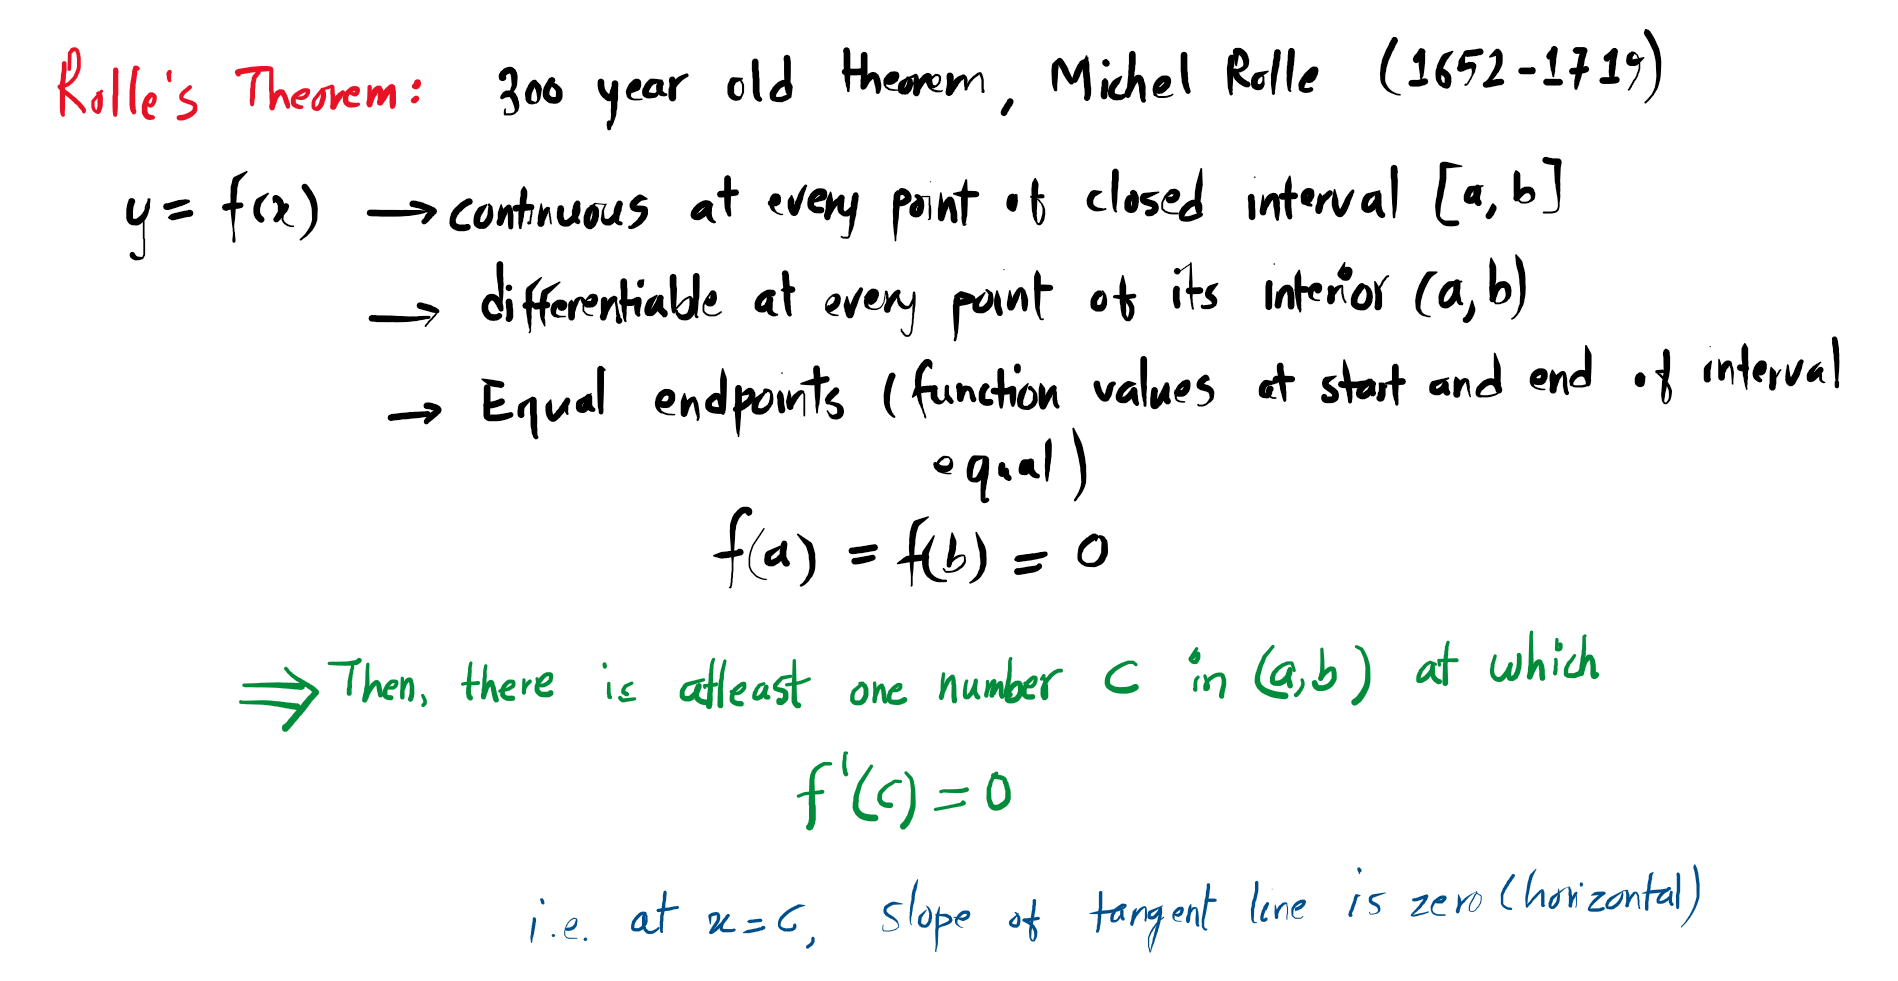 Rolle's Theorem: 300 year old theorem, Michel Rolle (1652-1719)
y = f(x) → continuous at every point of closed interval [a, b]
→ differentiable at every point of its interior (a, b)
→ Equal endpoints (function values at start and end of interval
equal)
f(a) = f(b) = 0
⇒ Then, there is atleast one number c in (a,b) at which
f'(c) = 0
i.e. at x = c, slope of tangent line is zero (horizontal)